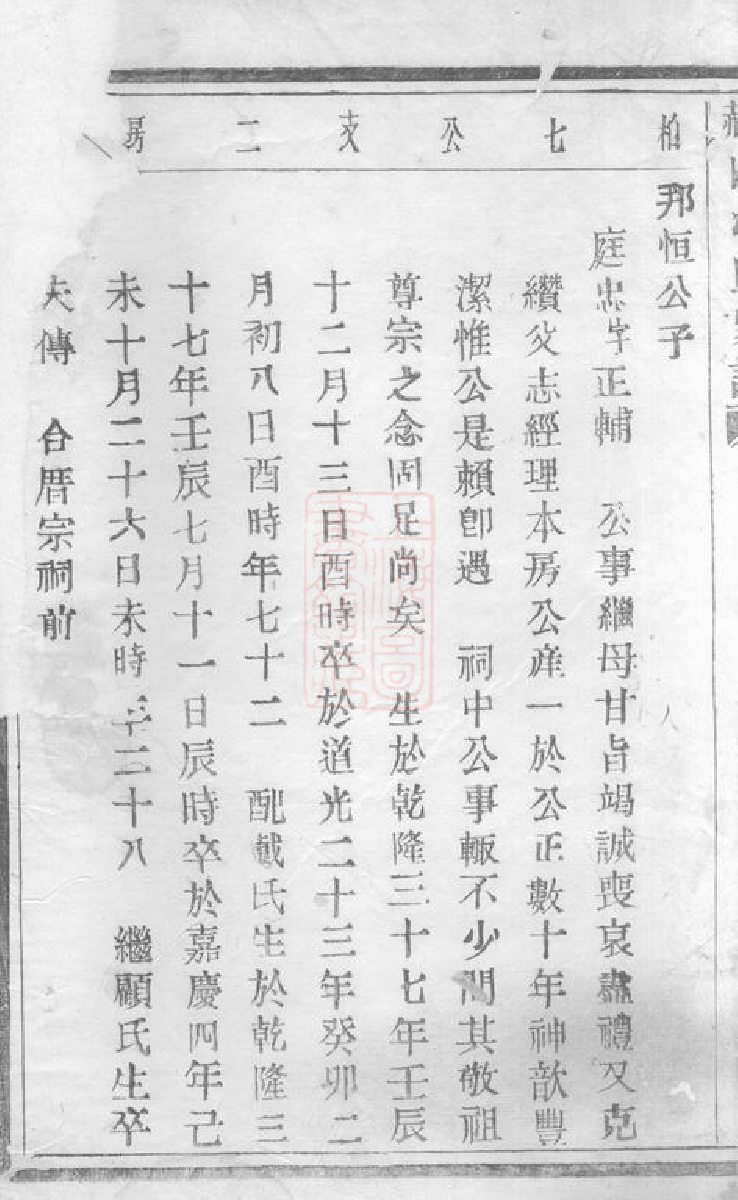 柏七公支二房
邦恒公子
庭忠字正輔 公事繼母甘旨竭誠喪哀盡禮又克
纘父志經理本房公産一於公正數十年神歆豐
潔惟公是賴卽遇 祠中公事輙不少間其敬祖
尊宗之念固足尚矣 生於乾隆三十七年壬辰
十二月十三日酉時卒於道光二十三年癸卯二
月初八日酉時年七十二 配戴氏生於乾隆三
十七年壬辰七月十一日辰時卒於嘉慶四年己
未十月二十六日未時年二十八 繼顧氏生卒
失傳 合厝宗祠前